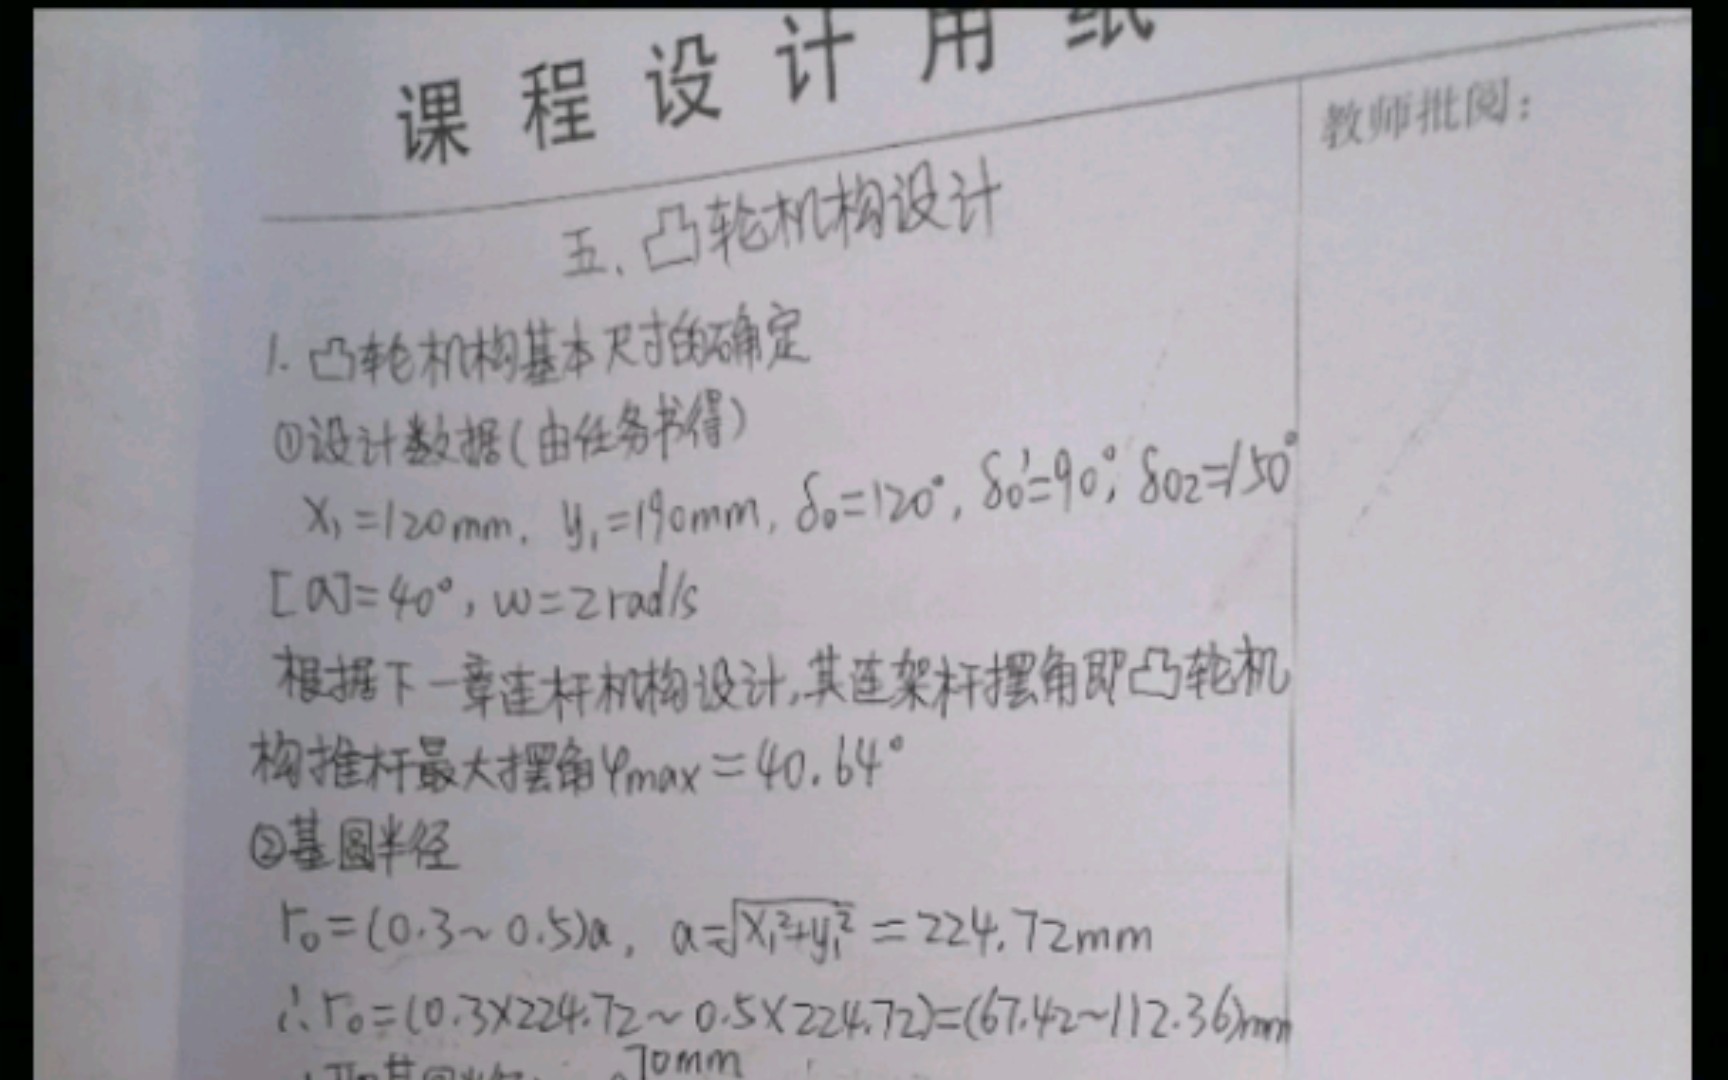 课程设计用纸
教师批阅:
五、凸轮机构设计
1. 凸轮机构基本尺寸的确定
①设计数据(由任务书得)
x₁=120mm, y₁=190mm, δ₀=120°, δ₀'=90°, δ₀₂=150°
[α]=40°, w=2rad/s
根据下一章连杆机构设计,其连架杆摆角即凸轮机
构推杆最大摆角φmax=40.64°
②基圆半径
r₀=(0.3~0.5)a, a=√x₁²+y₁²=224.72mm
∴r₀=(0.3×224.72~0.5×224.72)=(67.42~112.36)mm
70mm